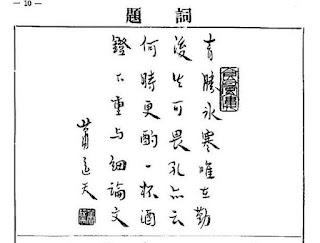 — 10 —
題詞
青勝氷寒唯在勤
後生可畏孔亦云
何時更酌一杯酒
鐙下重与細論文
蕭遥天